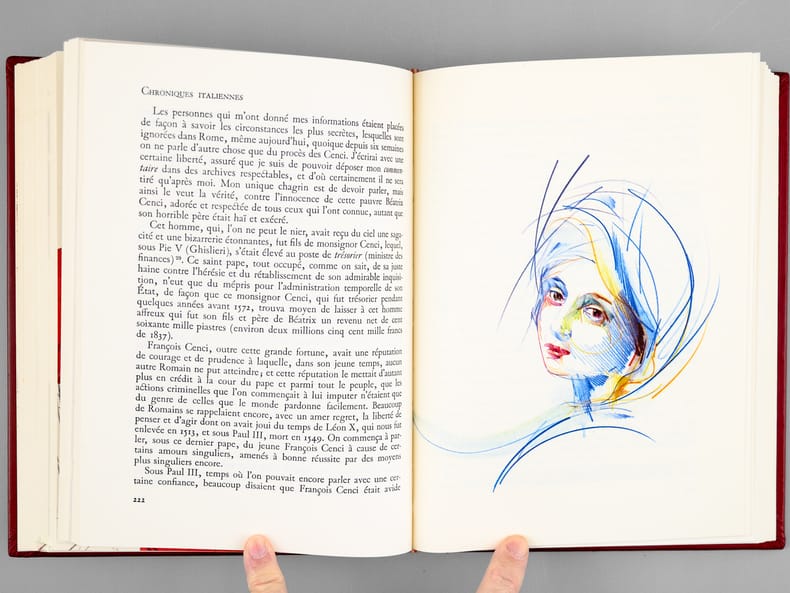 Chroniques italiennes
Les personnes qui m'ont donné mes informations étaient placées
de façon à savoir les circonstances les plus secrètes, lesquelles sont
ignorées dans Rome, même aujourd'hui, quoique depuis six semaines
on ne parle d'autre chose que du procès des Cenci. J'écrirai avec une
certaine liberté, assuré que je suis de pouvoir déposer mon commen-
taire dans des archives respectables, et d'où certainement il ne sera
tiré qu'après moi. Mon unique chagrin est de devoir parler, mais
ainsi le veut la vérité, contre l'innocence de cette pauvre Béatrix
Cenci, adorée et respectée de tous ceux qui l'ont connue, autant que
son horrible père était haï et exécré.
Cet homme, qui, l'on ne peut le nier, avait reçu du ciel une saga-
cité et une bizarrerie étonnantes, fut fils de monsignor Cenci, lequel,
sous Pie V (Ghislieri), s'était élevé au poste de trésorier (ministre des
finances). Ce saint pape, tout occupé, comme on sait, de sa juste
haine contre l'hérésie et du rétablissement de son admirable inquisi-
tion, n'eut que du mépris pour l'administration temporelle de son
État, de façon que ce monsignor Cenci, qui fut trésorier pendant
quelques années avant 1572, trouva moyen de laisser à cet homme
affreux qui fut son fils et père de Béatrix un revenu net de cent
soixante mille piastres (environ deux millions cinq cent mille francs
de 1837).
François Cenci, outre cette grande fortune, avait une réputation
de courage et de prudence à laquelle, dans son jeune temps, aucun
autre Romain ne put atteindre; et cette réputation le mettait d'autant
plus en crédit à la cour du pape et parmi tout le peuple, que les
actions criminelles que l'on commençait à lui imputer n'étaient que
du genre de celles que le monde pardonne facilement. Beaucoup
de Romains se rappelaient encore, avec un amer regret, la liberté de
penser et d'agir dont on avait joui du temps de Léon X, qui nous fut
enlevée en 1513, et sous Paul III, mort en 1549. On commença à par-
ler, sous ce dernier pape, du jeune François Cenci à cause de cer-
tains amours singuliers, amenés à bonne réussite par des moyens
plus singuliers encore.
Sous Paul III, temps où l'on pouvait encore parler avec une cer-
taine confiance, beaucoup disaient que François Cenci était avide
222